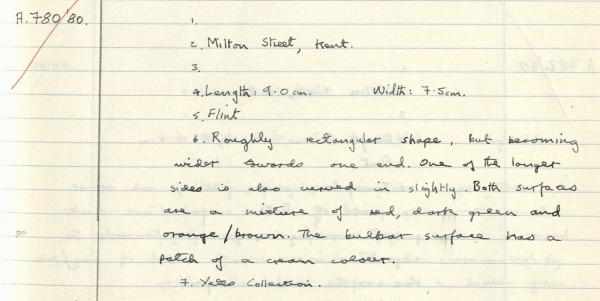 A.780/'80.
1.
2. Milton Street, Kent.
3.
4. Length: 9.0 cm. Width: 7.5cm.
5. Flint
6. Roughly rectangular shape, but becoming
wider towards one end. One of the longer
sides is also curved in slightly. Both surfaces
are a mixture of red, dark green and
orange/brown. The bulbar surface has a
patch of a cream colour.
7. Yates Collection.